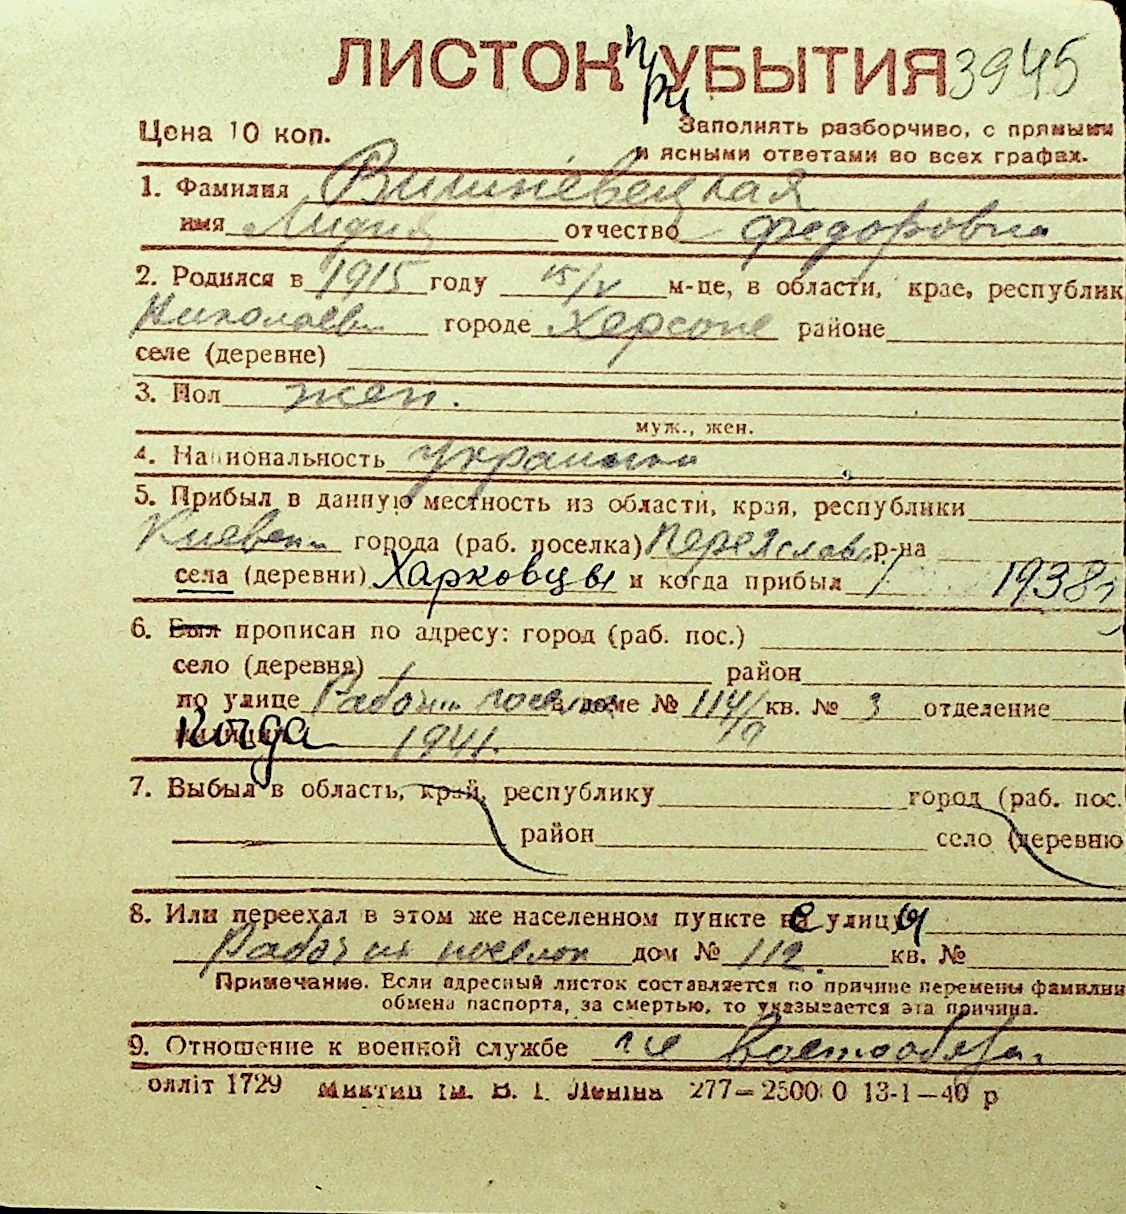 ЛИСТОК при УБЫТИЯ 3945
Цена 10 коп.
Заполнять разборчиво, с прямыми
и ясными ответами во всех графах.
1. Фамилия Вишневецкая
имя Лидия отчество Федоровна
2. Родился в 1915 году 15/V м-це, в области, крае, республик
Николаевск городе Херсоне районе
селе (деревне)
3. Пол жен.
муж., жен.
4. Национальность украинка
5. Прибыл в данную местность из области, края, республики
Киевск. города (раб. поселка) Переяславск р-на
села (деревни) Харковцы и когда прибыл 1938г
6. Был прописан по адресу: город (раб. пос.)
село (деревня) район
по улице Рабочий поселок в доме № 114/ кв. № 3 отделение
Когда 1941.
7. Выбыл в область, край, республику город (раб. пос.
район село (деревню
8. Или переехал в этом же населенном пункте не улицы
Рабочий поселок дом № 112. кв. №
Примечание. Если адресный листок составляется по причине перемены фамилии
обмена паспорта, за смертью, то указывается эта причина.
9. Отношение к военной службе не военнообяз.
олліт 1729 Миктип ім. В. І. Леніна 277—2500 0 13-1—40 р